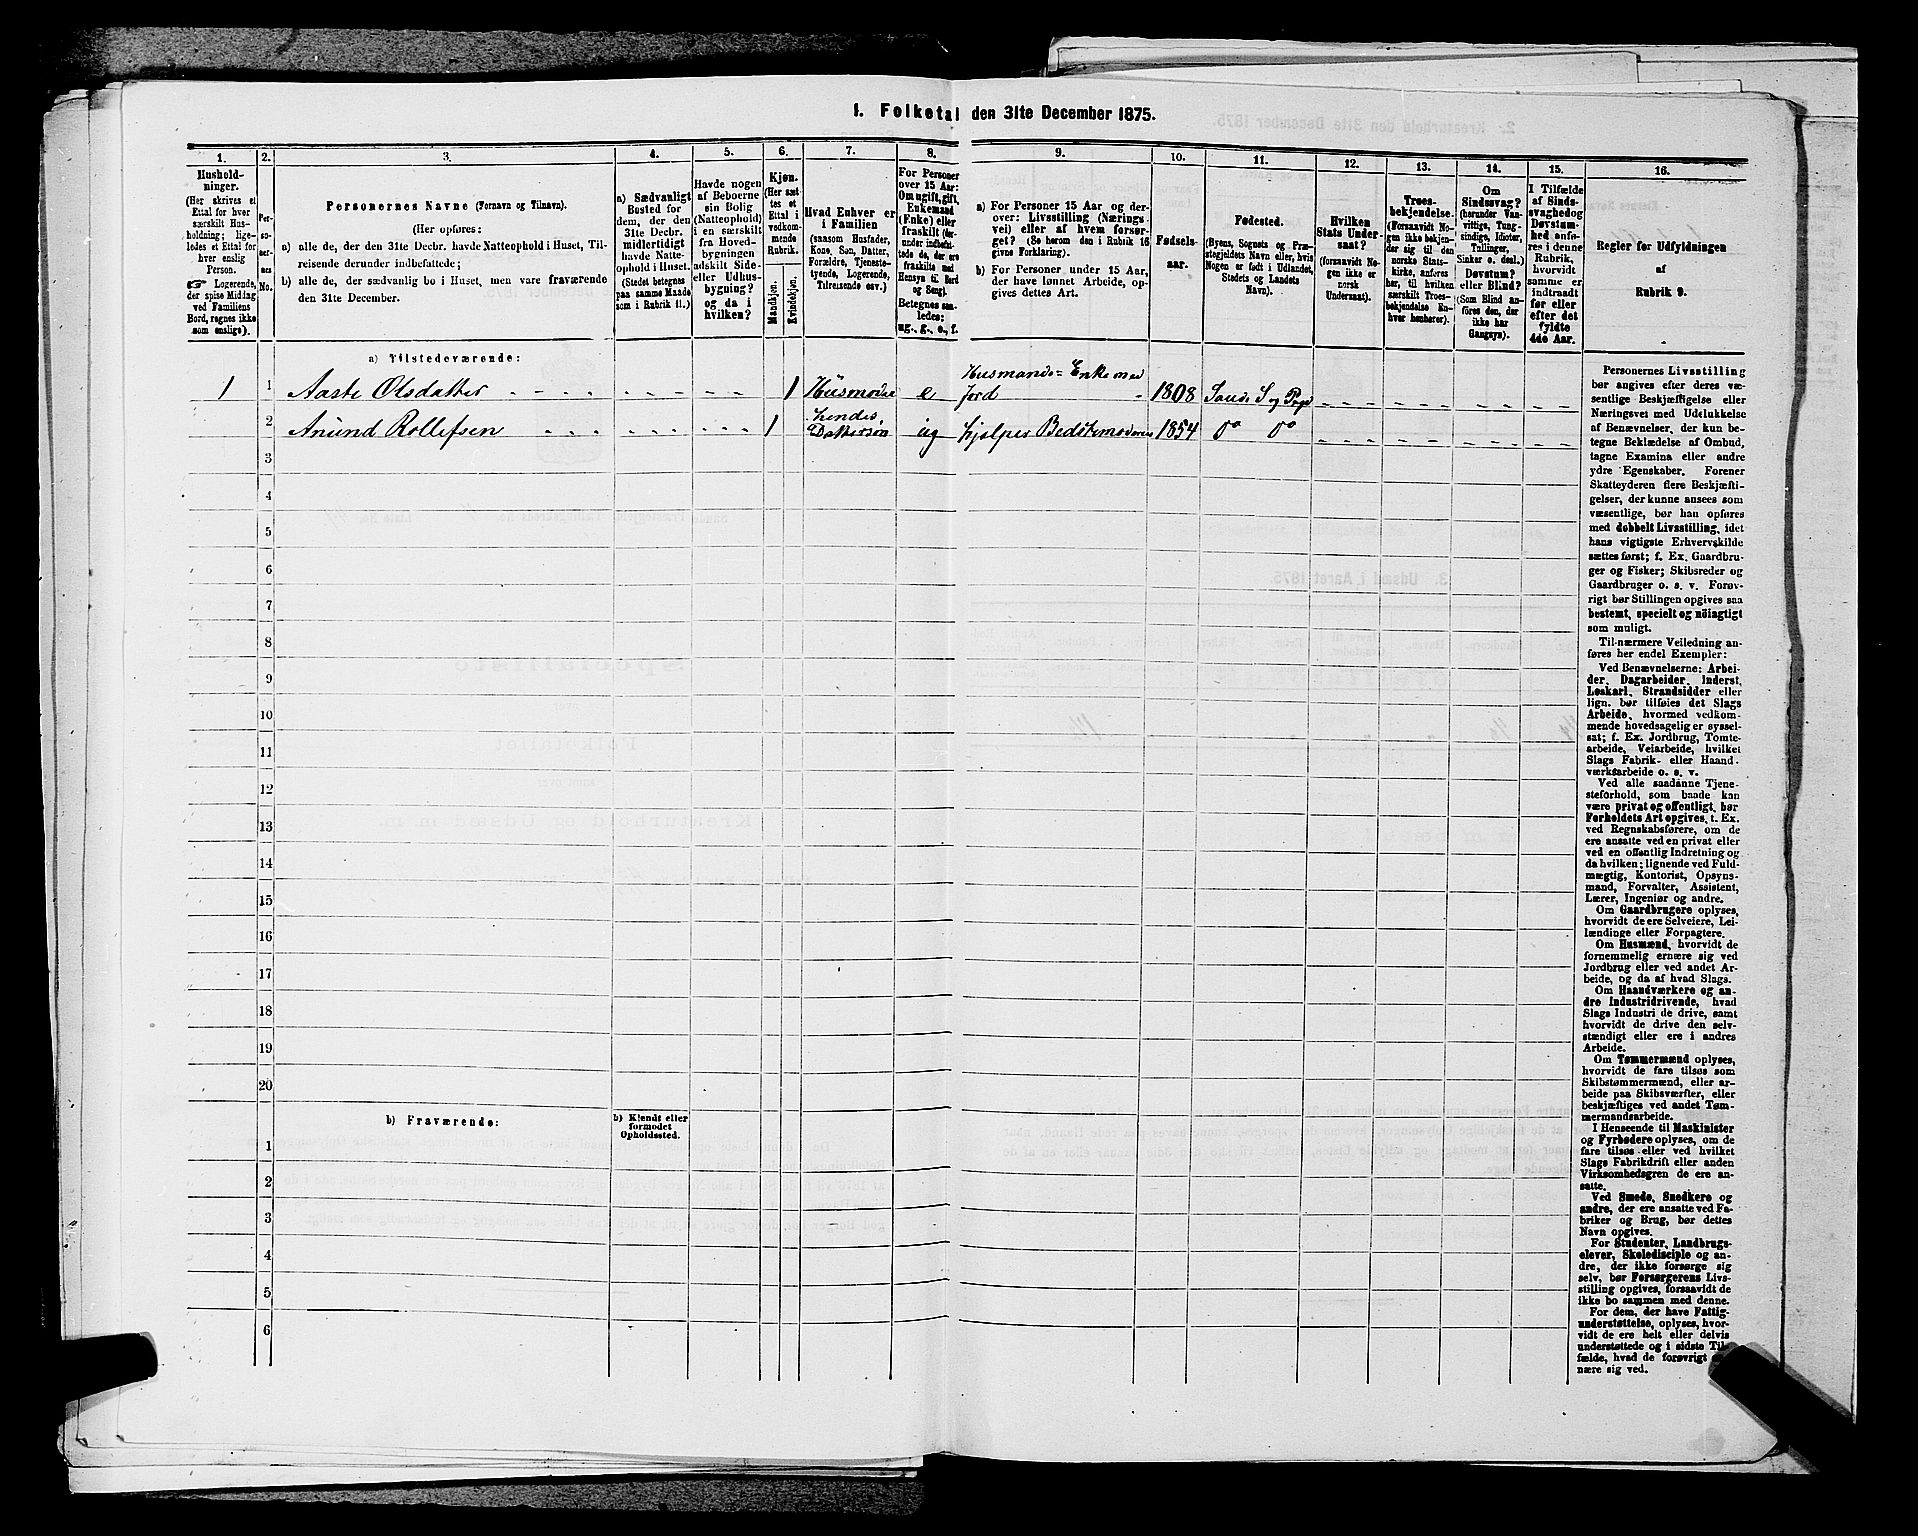 1. Folketal den 31te December 1875.
1.
2.
3.
4.
5.
6.
7.
8.
9.
10.
11.
12.
13.
14.
15.
16.
Hushold-
ninger.
(Her skrives et
Ettal for hver
særskilt Hus-
holdning; lige-
ledes et Ettal for
hver enslig
Person.
☞ Logerende,
der spise Middag
ved Familiens
Bord, regnes ikke
som enslige).
Per-
so-
ner-
nes
No.
Personernes Navne (Fornavn og Tilnavn).
(Her opføres:
a) alle de, der den 31te Decbr. havde Natteophold i Huset, Til-
reisende derunder indbefattede;
b) alle de, der sædvanlig bo i Huset, men vare fraværende
den 31te December.
a) Sædvanligt
Bosted for
dem, der den
31te Decbr.
midlertidigt
havde Natte-
ophold i Huset.
(Stedet betegnes
paa samme Maade
som i Rubrik 11.)
Havde nogen
af Beboerne
sin Bolig
(Natteophold)
i en særskilt
fra Hoved-
bygningen
adskilt Side-
eller Udhus-
bygning?
og da i
hvilken?
Kjøn.
(Her sæt-
tes et
Ettal i
vedkom-
mende
Rubrik.
Mandkjøn.
Kvindekjøn.
Hvad Enhver er
i Familien
(saasom Husfader,
Kone, Søn, Datter,
Forældre, Tjeneste-
tyende, Logerende,
Tilreisende osv.)
For Personer
over 15 Aar:
Om ugift, gift,
Enkemand
(Enke) eller
fraskilt (der-
under indbefat-
tede de, der ere
fraskilte med
Hensyn til Bord
og Seng).
Betegnes saa-
ledes:
ug., g., e., f.
a) For Personer 15 Aar og der-
over: Livsstilling (Nærings-
vei) eller af hvem forsør-
get? (Se herom den i Rubrik 16
givne Forklaring).
b) For Personer under 15 Aar,
der have lønnet Arbeide, op-
gives dettes Art.
Fødsels-
aar.
Fødested.
(Byens, Sognets og Præ-
stegjeldets Navn eller, hvis
Nogen er født i Udlandet,
Stedets og Landets
Navn).
Hvilken
Stats Under-
saat?
(forsaavidt No-
gen ikke er
norsk
Undersaat).
Troes-
bekjendelse.
(Forsaavidt No-
gen ikke bekjen-
der sig til den
norske Stats-
kirke, anføres
her, til hvilken
særskilt Troes-
bekjendelse En-
hver henhører).
Om
Sindssvag?
(herunder Van-
vittige, Tung-
sindige, Idioter,
Tullinger,
Sinker o. desl.)
Døvstum?
eller Blind?
(Som Blind an-
føres den, der
ikke har
Gangsyn).
I Tilfælde
af Sinds-
svaghed og
Døvstum-
hed anfø-
res i denne
Rubrik,
hvorvidt
samme er
indtraadt
før eller
efter det
fyldte
4de Aar.
Regler for Udfyldningen
af
Rubrik 9.
a) Tilstedeværende:
1 1 Aaste Olsdatter 1 Husmoder e Husmands=Enke med Jord 1808 Saude S og Pgj
2 Anund Rollefsen 1 hendes Dattersøn ug hjelper Bedstemoderen 1854 Do Do
3
4
5
6
7
8
9
10
11
12
13
14
15
16
17
18
19
20
b) Fraværende:
b) Kjendt eller
formodet
Opholdssted.
1
2
3
4
5
6
Personernes Livsstilling
bør angives efter deres væ-
sentlige Beskjæftigelse eller
Næringsvei med Udelukkelse
af Benævnelser, der kun be-
tegne Beklædelse af Ombud,
tagne Examina eller andre
ydre Egenskaber. Forener
Skatteyderen flere Beskjæfti-
gelser, der kunne ansees som
væsentlige, bør han opføres
med dobbelt Livsstilling, idet
hans vigtigste Erhvervskilde
sættes først; f. Ex. Gaardbru-
ger og Fisker; Skibsreder og
Gaardbruger o. s. v. Forøv-
rigt bør Stillingen opgives saa
bestemt, specielt og nöiagtigt
som muligt.
Til nærmere Veiledning an-
føres her endel Exempler:
Ved Benævnelserne: Arbei-
der, Dagarbeider, Inderst,
Løskarl, Strandsidder eller
lign. bør tilføies det Slags
Arbeide, hvormed vedkom-
mende hovedsagelig er syssel-
sat; f. Ex. Jordbrug, Tomte-
arbeide, Veiarbeide, hvilket
Slags Fabrik- eller Haand-
værksarbeide o. s. v.
Ved alle saadanne Tjene-
steforhold, som baade kan
være privat og offentligt, bør
Forholdets Art opgives, t. Ex.
ved Regnskabsførere, om de
ere ansatte ved en privat eller
ved en offentlig Indretning og
da hvilken; lignende ved Fuld-
mægtig, Kontorist, Opsyns-
mand, Forvalter, Assistent,
Lærer, Ingeniør og andre.
Om Gaardbrugere oplyses,
hvorvidt de ere Selveiere, Lei-
lændinge eller Forpagtere.
Om Husmænd, hvorvidt de
fornemmelig ernære sig ved
Jordbrug eller ved andet Ar-
beide, og da af hvad Slags.
Om Haandværkere og an-
dre Industridrivende, hvad
Slags Industri de drive, samt
hvorvidt de drive den selv-
stændigt eller ere i andres
Arbeide.
Om Tømmermænd oplyses,
hvorvidt de fare tilsøs som
Skibstømmermænd, eller ar-
beide paa Skibsværfter, eller
beskjæftiges ved andet Tøm-
mermandsarbeide.
I Henseende til Maskinister
og Fyrbødere oplyses, om de
fare tilsøs eller ved hvilket
Slags Fabrikdrift eller anden
Virksomhedsgren de ere an-
satte.
Ved Smede, Snedkere og
andre, der ere ansatte ved Fa-
briker og Brug, bør dettes
Navn opgives.
For Studenter, Landbrugs-
elever, Skoledisciple og an-
dre, der ikke forsørge sig
selv, bør Forsørgerens Livs-
stilling opgives, forsaavidt de
ikke bo sammen med denne.
For dem, der have Fattig-
understøttelse, oplyses, hvor-
vidt de ere helt eller delvis
understøttede og i sidste Til-
fælde, hvad de forøvrigt
nære sig ved.